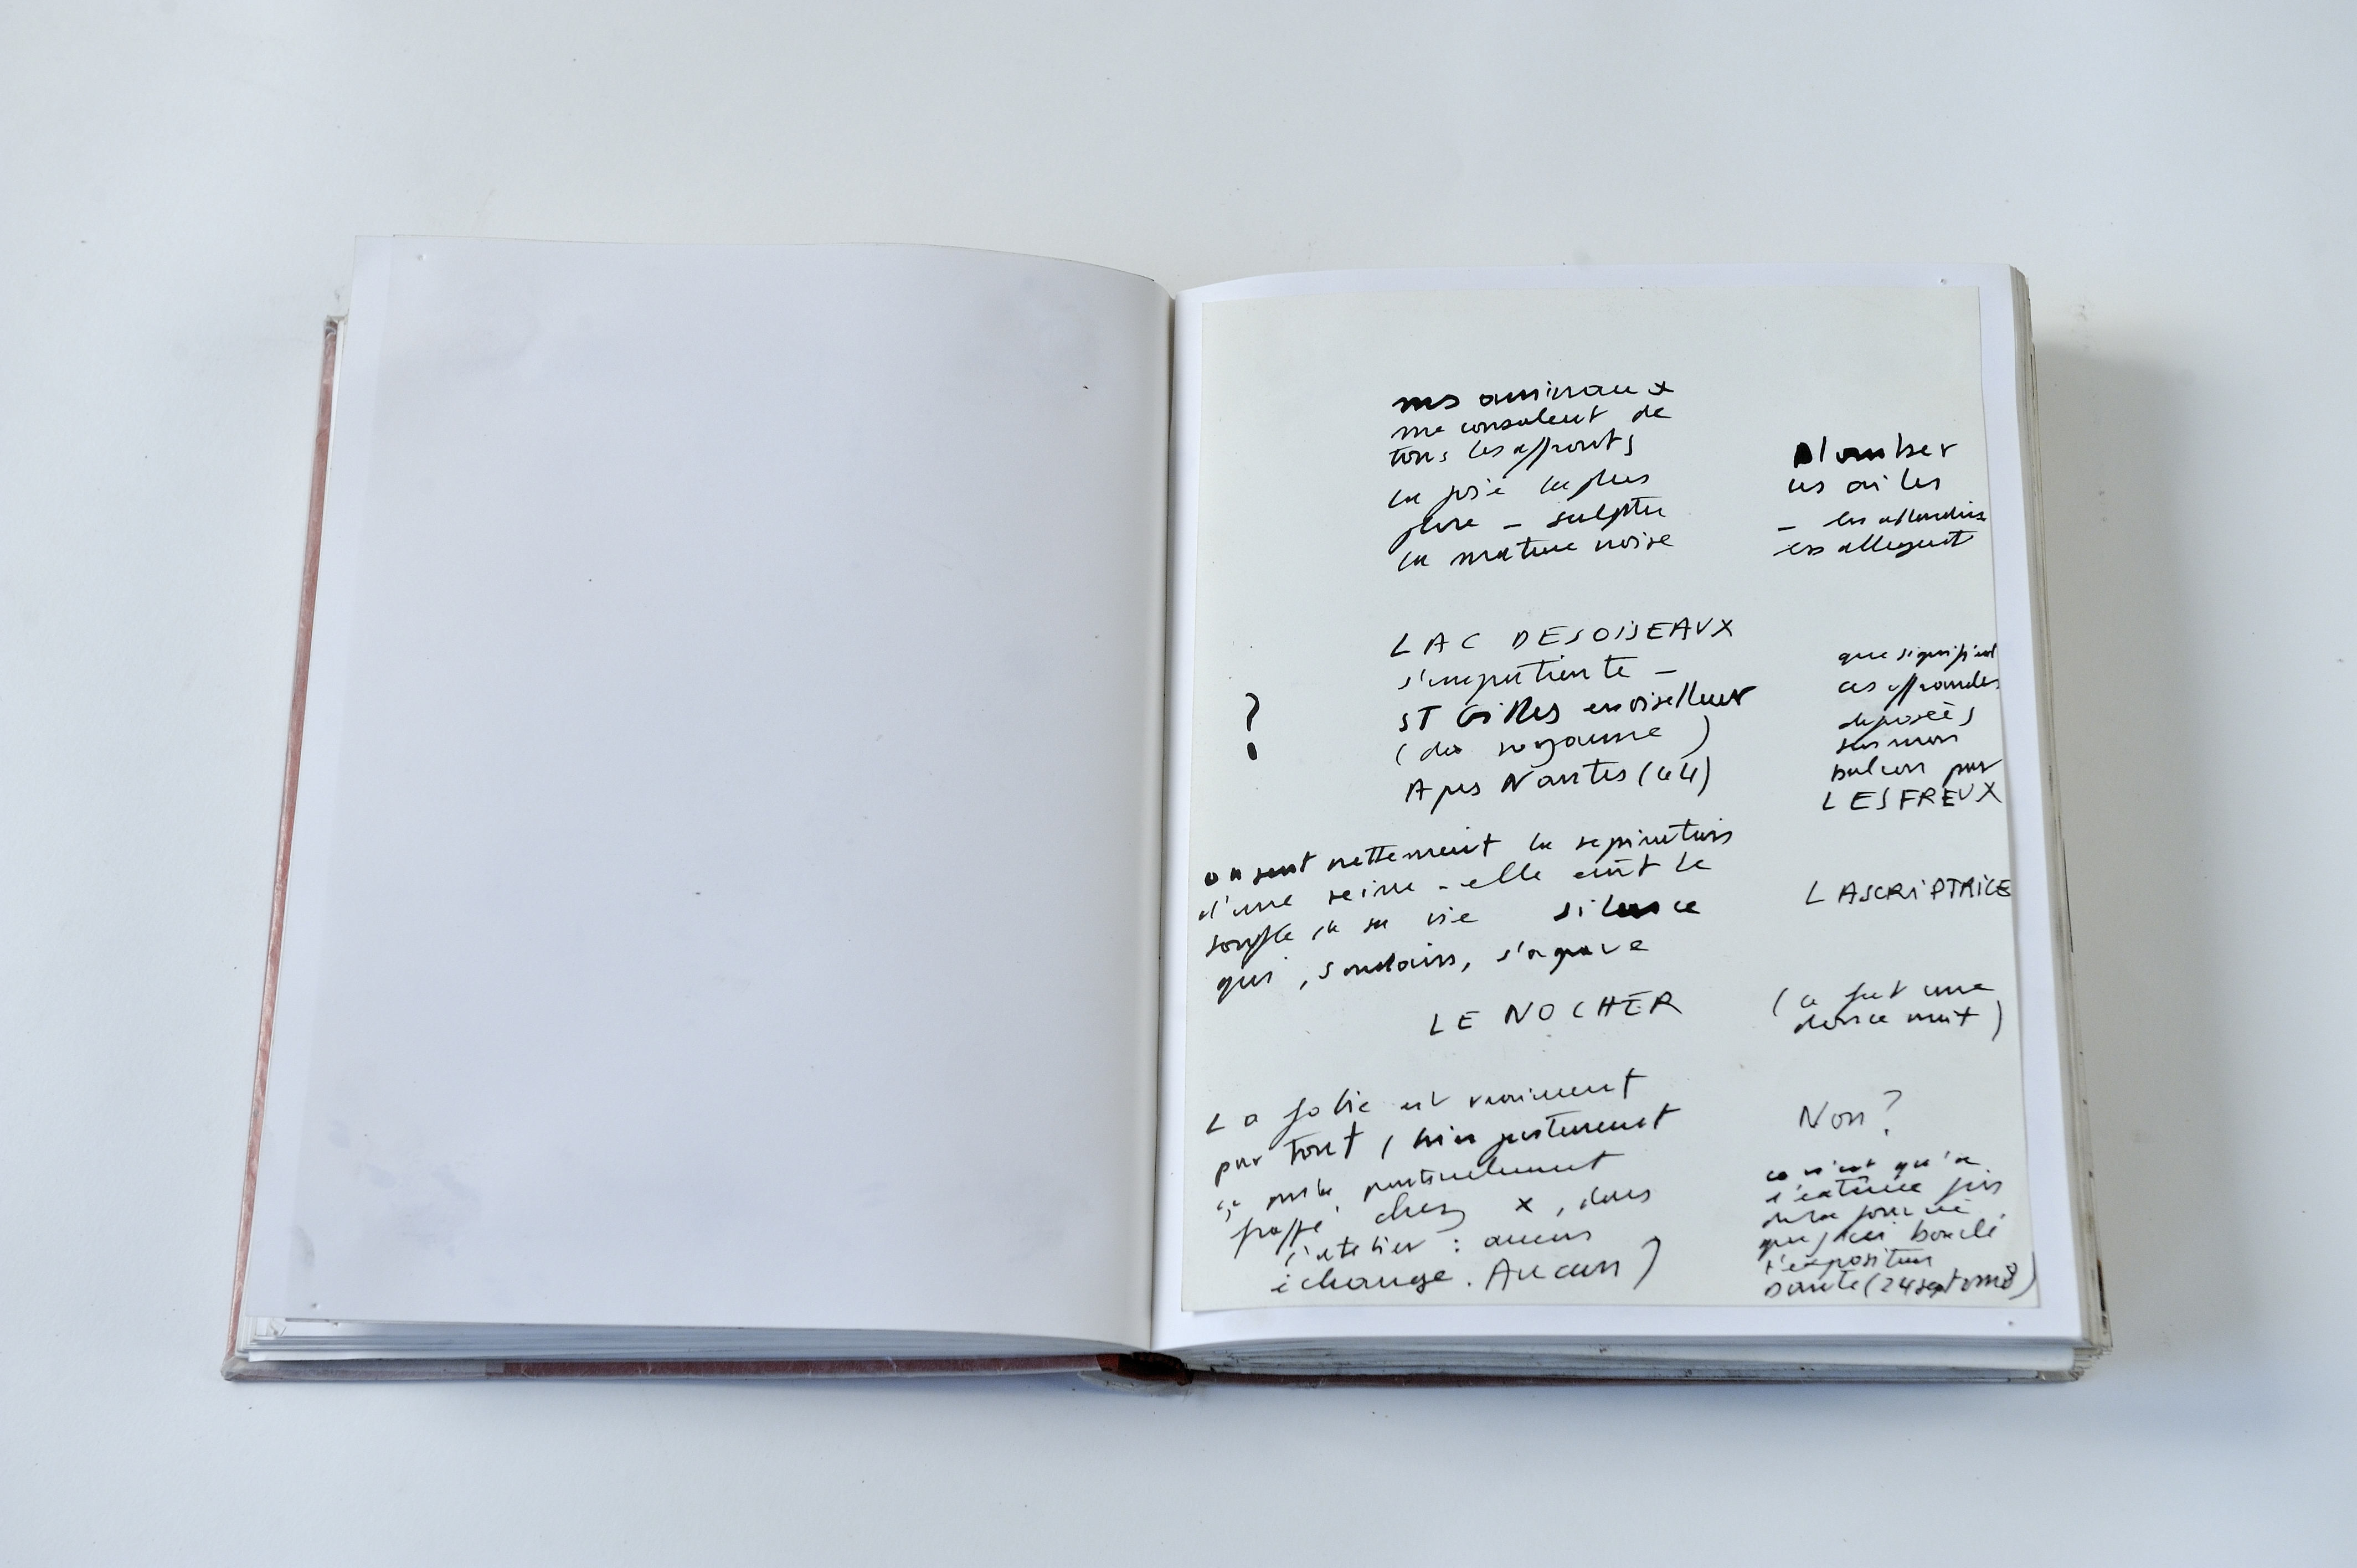 mes animaux
me consolent de
tous les affronts
la joie la plus
pure – sculpter
la matière noire
Plomber
les ailes
–
les allègent
LAC DES OISEAUX
s'impatiente –
?
ST Gilles enoiselleur
(du royaume)
Apes Nantes (44)
que signifient
ces offrandes
déposées
sur mon
balcon par
LES FREUX
on sent nettement la respiration
d'une reine – elle eût le
souffle de sa vie silence
qui, soudain, s'agrave
LASCRIPTRICE
LE NOCHER
(ce fut une
douce nuit)
La folie est vraiment
par tout (bien justement
ça parle
frappé chez X, dans
l'atelier : aucun
échange. Aucun)
Non ?
ce n'est qu'à
de la journée
que j'ai bouclé
l'exposition
Dante (24 septembre)